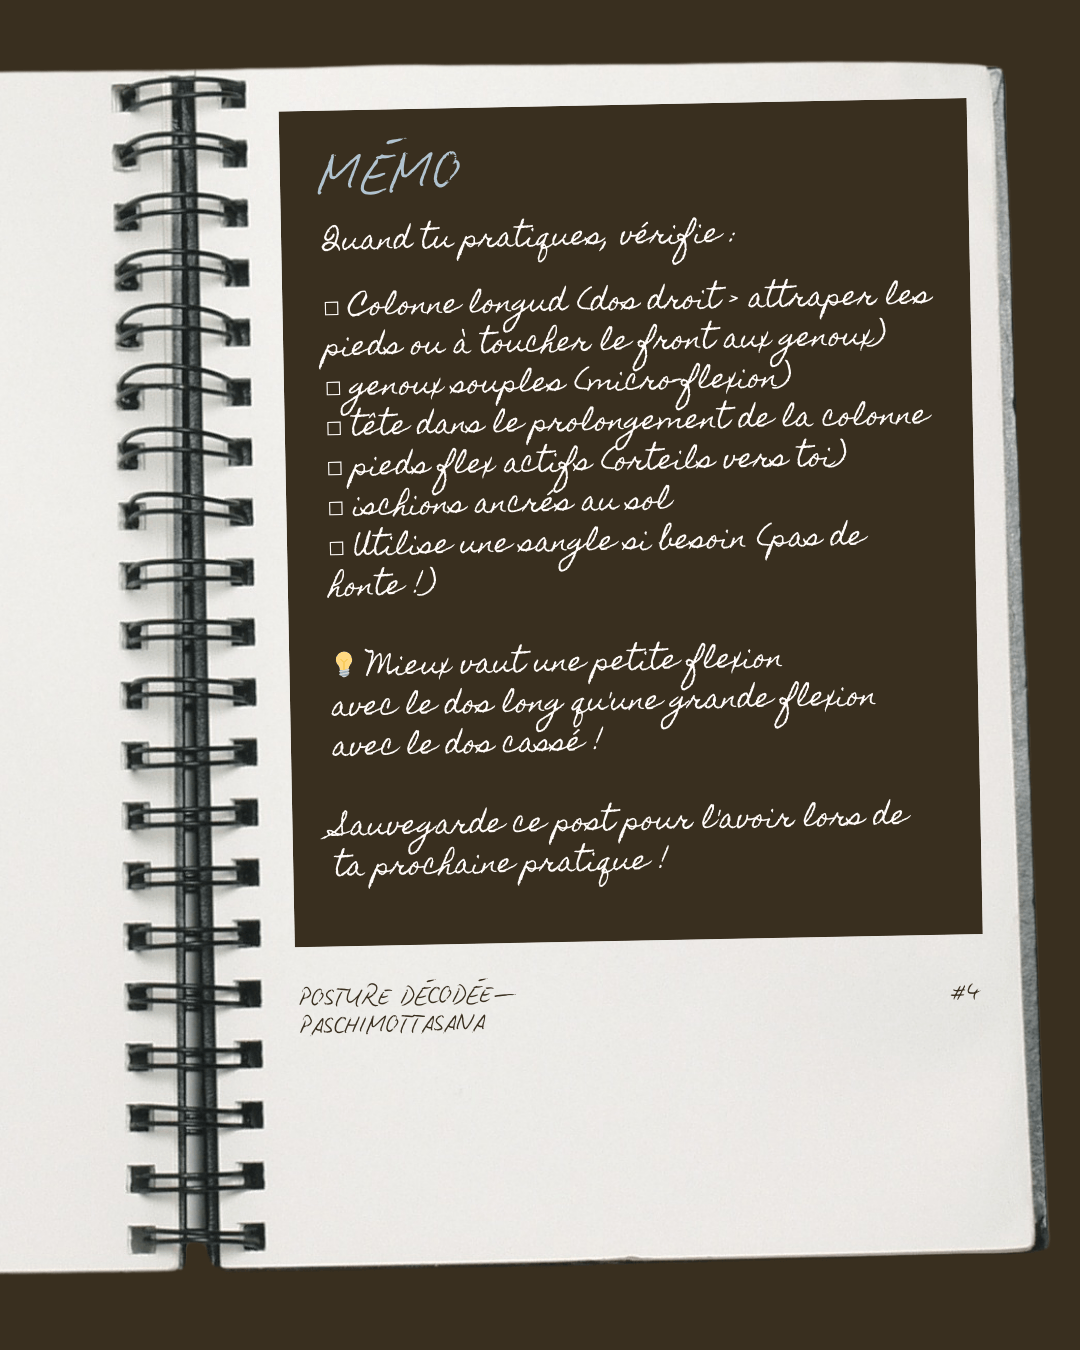 MÉMO
Quand tu pratiques, vérifie :
□ Colonne longud (dos droit > attraper les
pieds ou à toucher le front aux genoux)
□ genoux souples (micro-flexion)
□ tête dans le prolongement de la colonne
□ pieds flex actifs (orteils vers toi)
□ ischions ancrés au sol
□ Utilise une sangle si besoin (pas de
honte !)
💡 Mieux vaut une petite flexion
avec le dos long qu'une grande flexion
avec le dos cassé !
Sauvegarde ce post pour l'avoir lors de
ta prochaine pratique !
POSTURE DÉCODÉE—
PASCHIMOTTASANA
#4